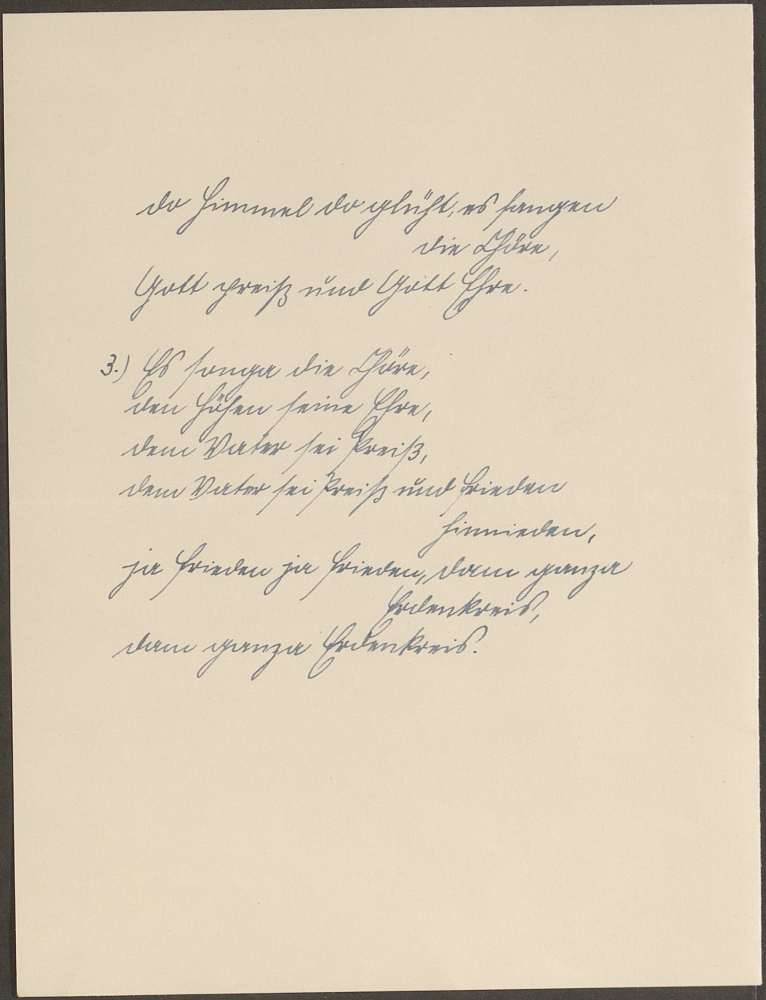 do Himmel do glüht, es sangen
die Chöre,
Gott preiß und Gott Ehre.
3.) Es songa die Chöre,
den Höhen seine Ehre,
dem Vater sei Preiß,
dem Vater sei Preiß und Frieden
hinnieden,
ja Frieden ja Frieden, dam ganza
Erdenkreis,
dam ganza Erdenkreis.